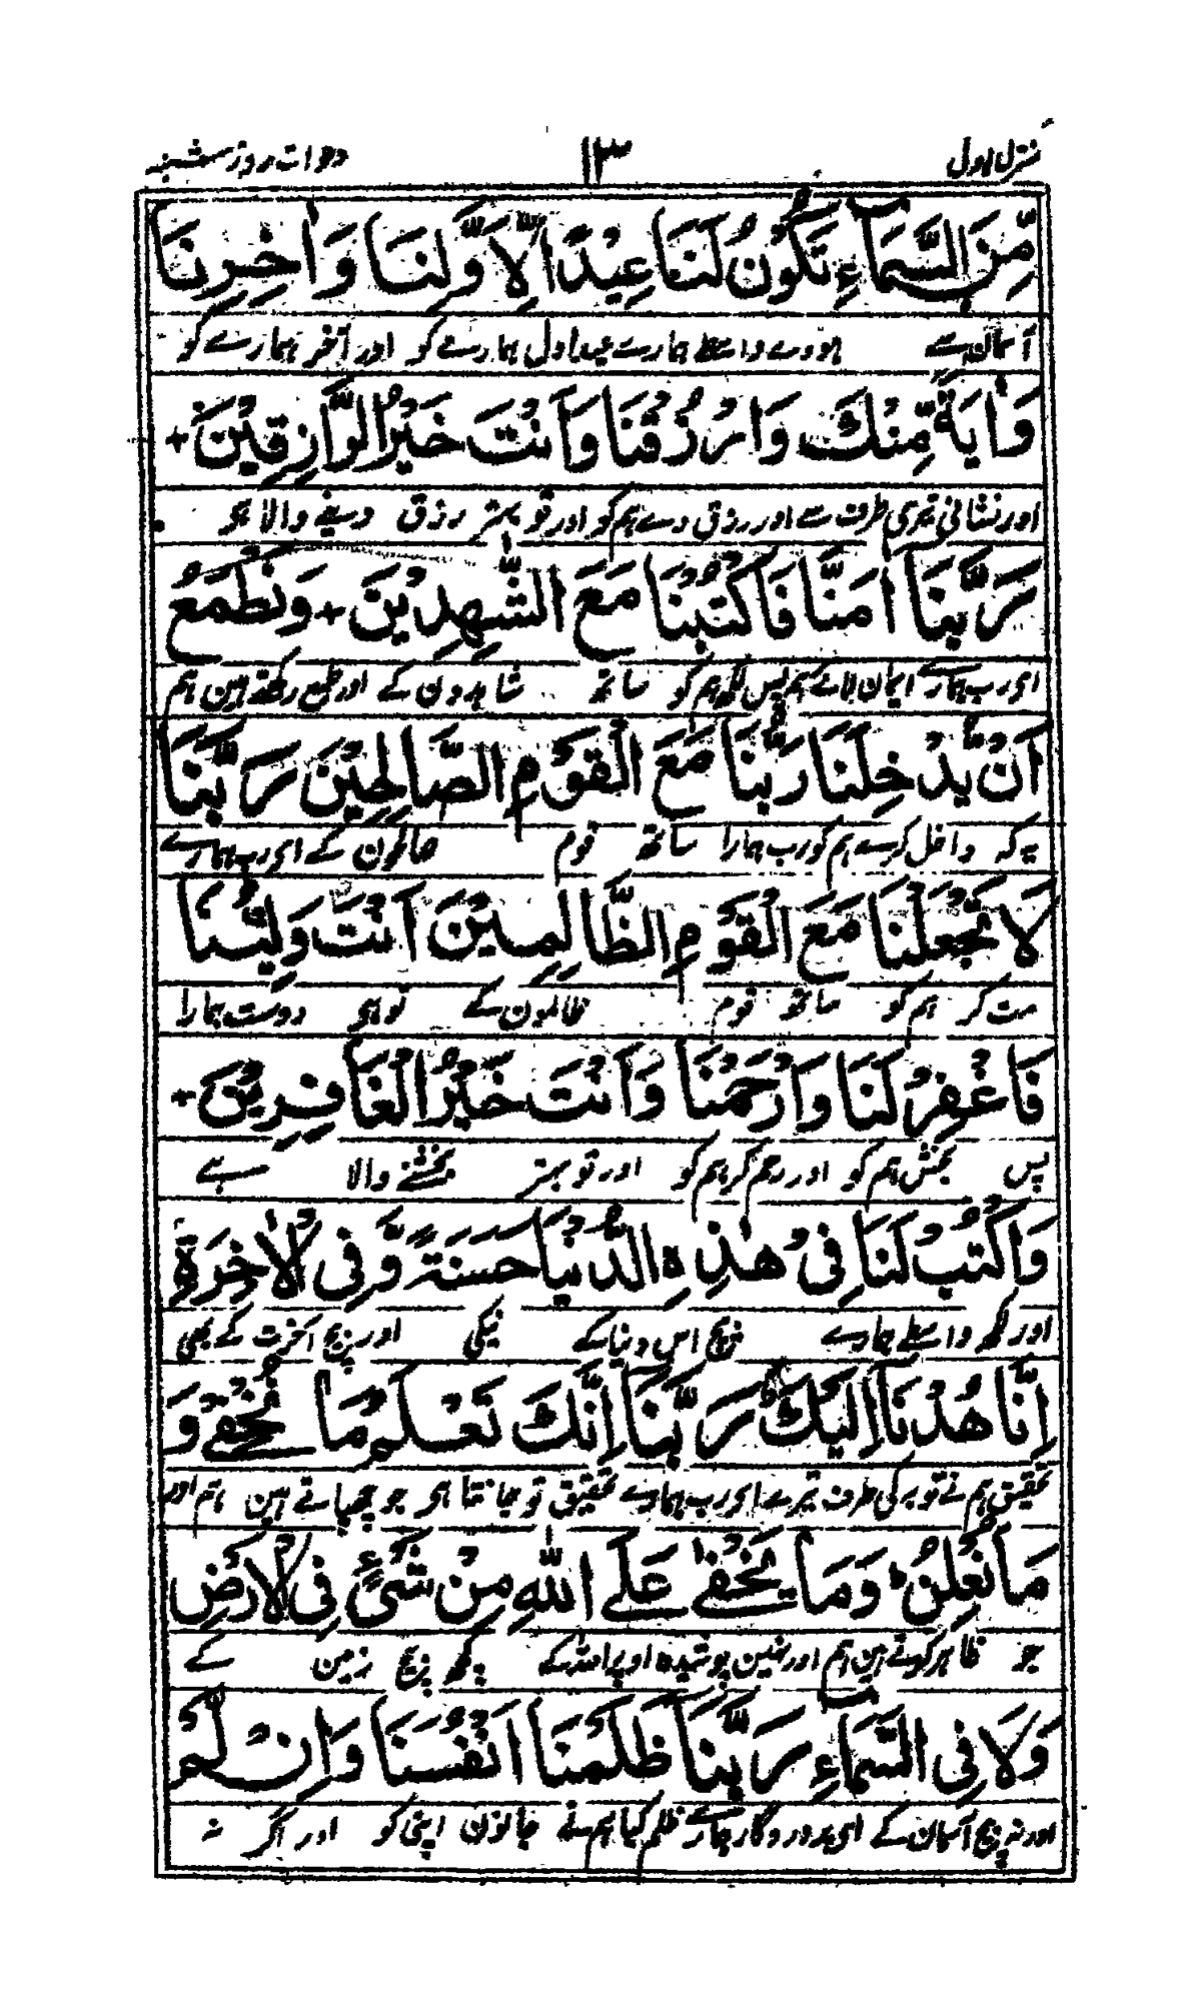 منزل اول ۱۳ دعوات روز شنبہ
مِّنَ السَّمَآءِ تَكُوْنُ لَنَا عِيْدًا لِّاَوَّلِنَا وَاٰخِرِنَا
آسمان سے ہووے واسطے ہمارے عید اول ہمارے کو اور آخر ہمارے کو
وَاٰيَةً مِّنْكَ وَارْزُقْنَا وَاَنْتَ خَيْرُ الرَّازِقِيْنَ +
اور نشانی تیری طرف سے اور رزق دے ہم کو اور تو بہتر رزق دینے والا ہی
رَبَّنَا اٰمَنَّا فَاكْتُبْنَا مَعَ الشّٰهِدِيْنَ + وَنَطْمَعُ
ای رب ہمارے ایمان لائے ہم پس لکھ ہم کو ساتھ شاہدون کے اور طمع رکھتے ہین ہم
اَنْ يُّدْخِلَنَا رَبُّنَا مَعَ الْقَوْمِ الصَّالِحِيْنَ رَبَّنَا
یہ کہ داخل کرے ہم کو رب ہمارا ساتھ قوم صالحون کے ای رب ہمارے
لَا تَجْعَلْنَا مَعَ الْقَوْمِ الظَّالِمِيْنَ اَنْتَ وَلِيُّنَا
مت کر ہم کو ساتھ قوم ظالمون کے تو ہی دوست ہمارا
فَاغْفِرْ لَنَا وَارْحَمْنَا وَاَنْتَ خَيْرُ الْغَافِرِيْنَ +
پس بخش ہم کو اور رحم کر ہم کو اور تو بہتر بخشنے والا ہے
وَاكْتُبْ لَنَا فِىْ هٰذِهِ الدُّنْيَا حَسَنَةً وَّفِى الْاٰخِرَةِ
اور لکھ واسطے ہمارے بیچ اس دنیا کے نیکی اور بیچ آخرت کے بھی
اِنَّا هُدْنَا اِلَيْكَ رَبَّنَا اِنَّكَ تَعْلَمُ مَا نُخْفِىْ وَ
تحقیق ہم نے توبہ کی طرف تیرے ای رب ہمارے تحقیق تو جانتا ہی جو چھپاتے ہین ہم اور
مَا نُعْلِنُ وَمَا يَخْفٰى عَلَى اللّٰهِ مِنْ شَىْءٍ فِى الْاَرْضِ
جو ظاہر کرتے ہین ہم اور نہین پوشیدہ اوپر اللہ کے کچھ بیچ زمین کے
وَلَا فِى السَّمَآءِ رَبَّنَا ظَلَمْنَا اَنْفُسَنَا وَاِنْ لَّمْ
اور نہ بیچ آسمان کے ای پروردگار ہمارے ظلم کیا ہم نے جانون اپنی کو اور اگر نہ